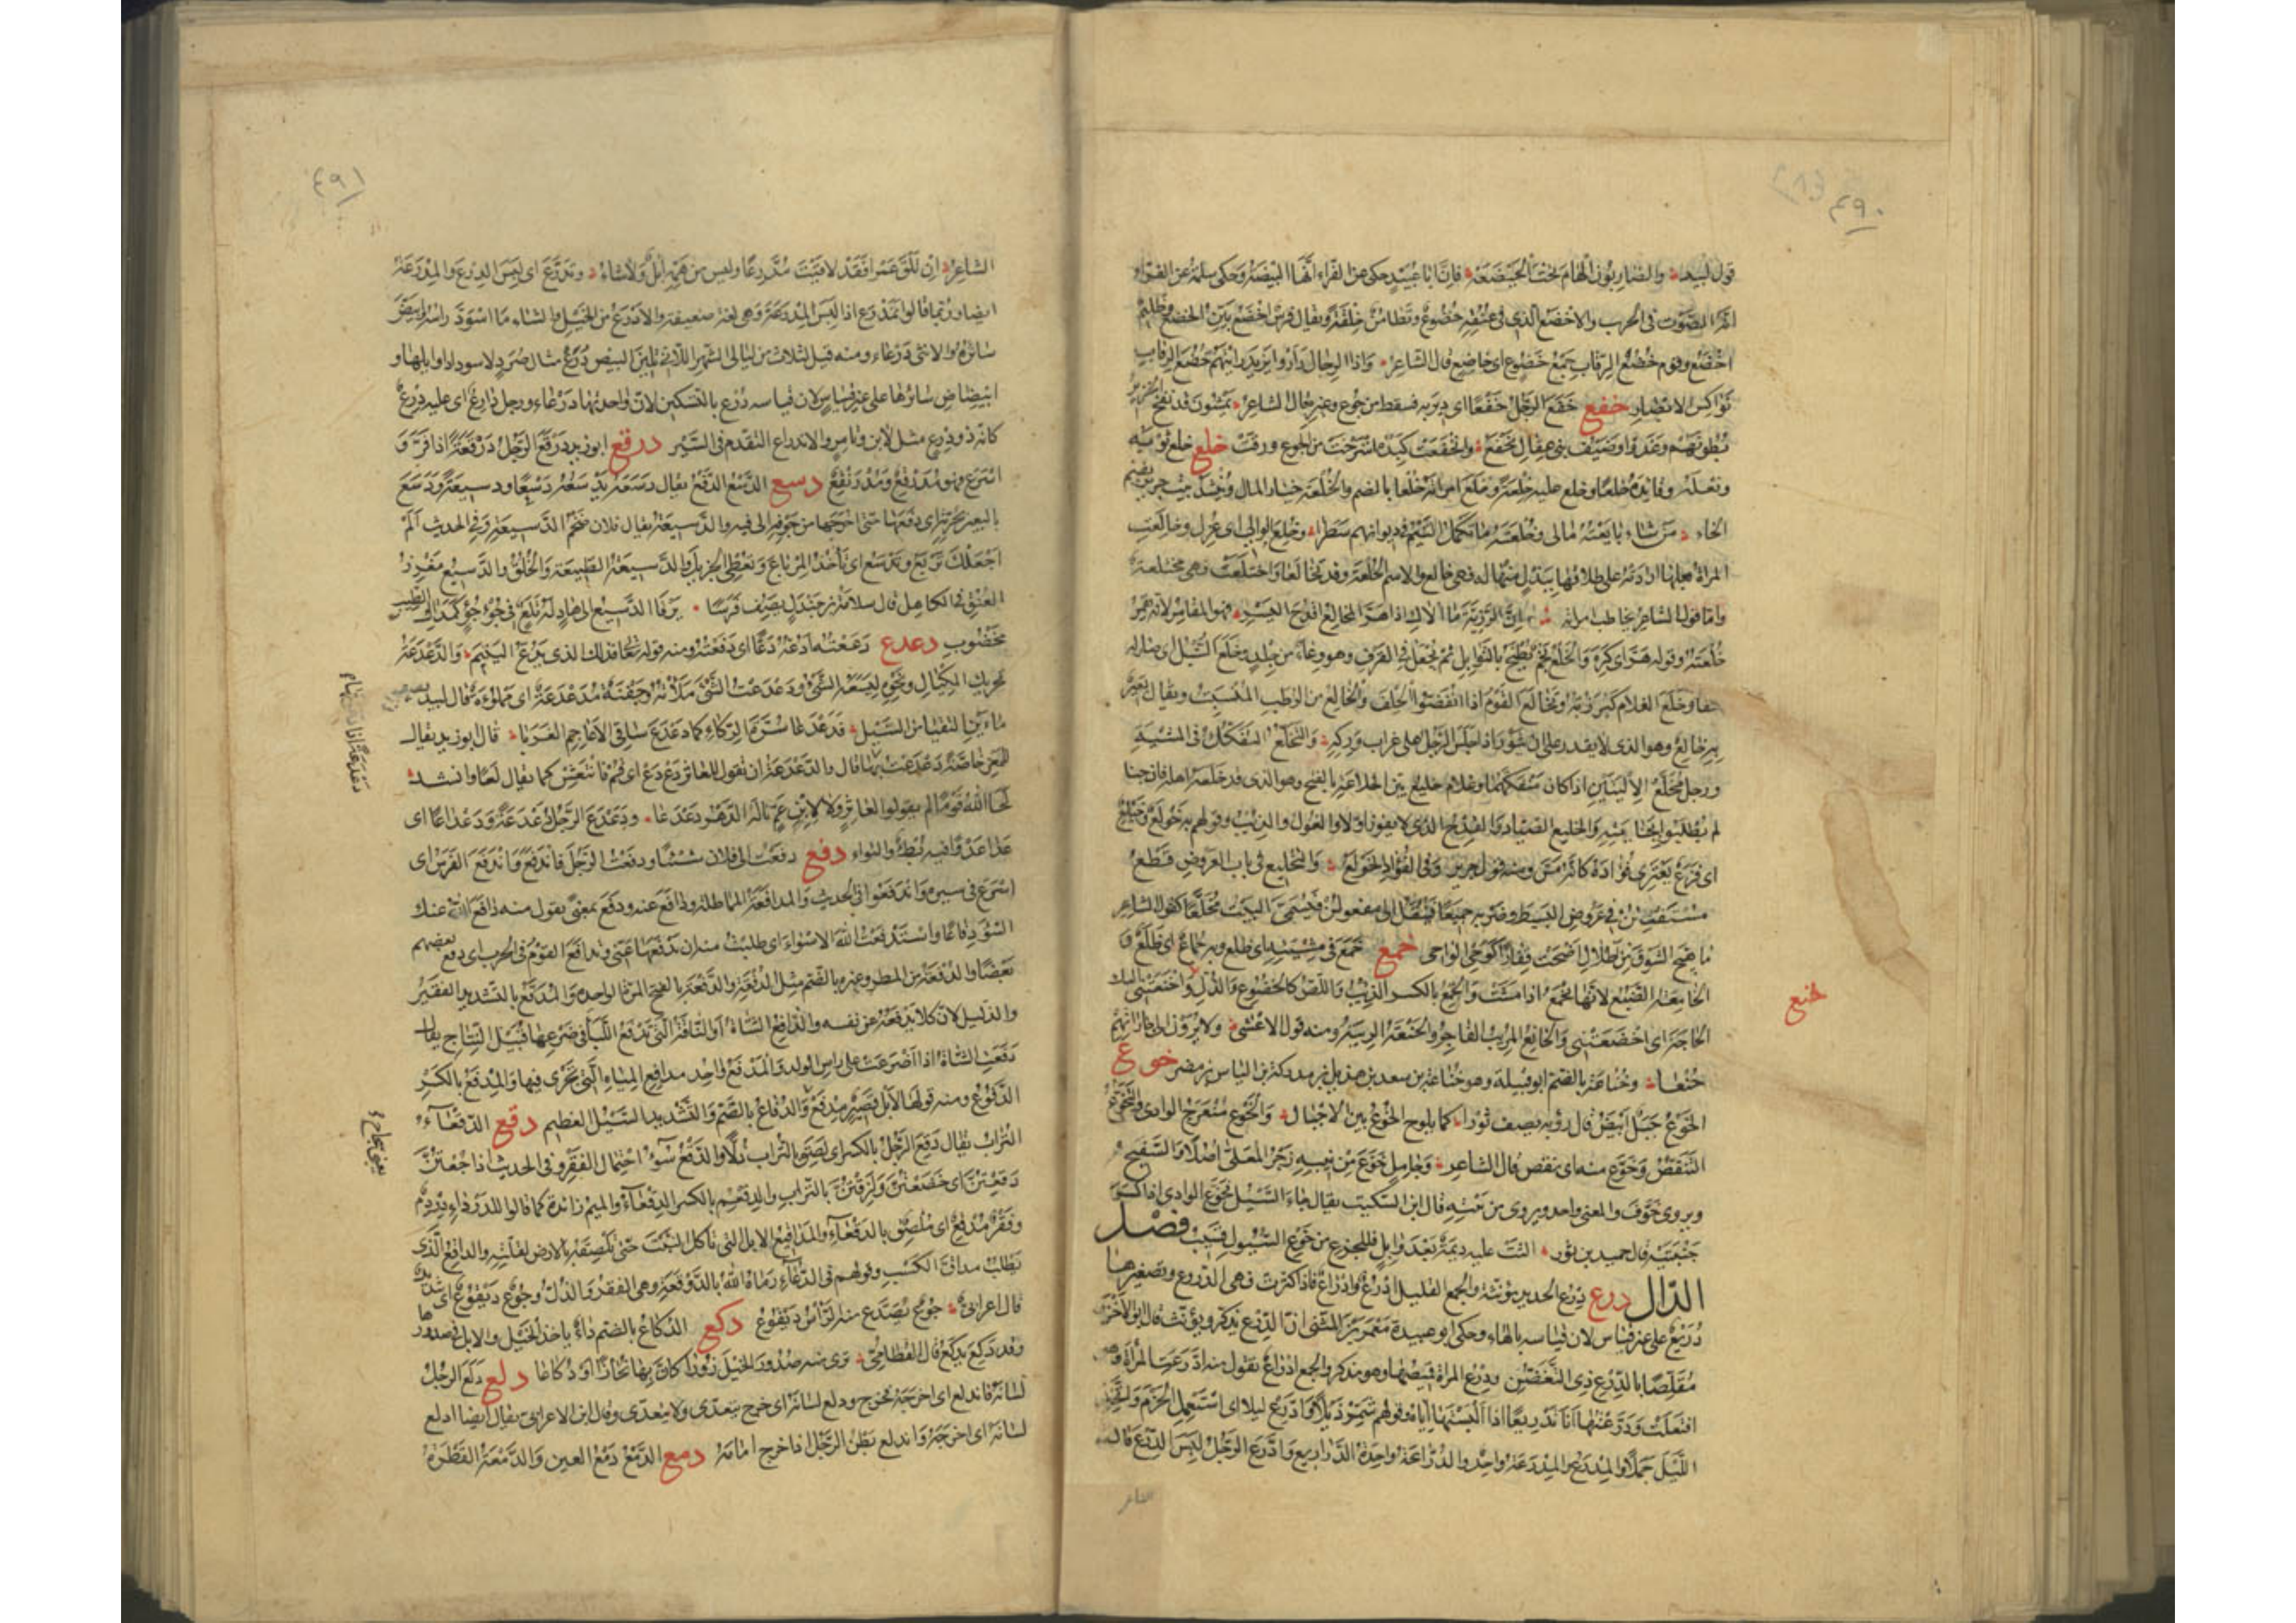 ٤٩٠
قول لبيد والضاربون الهام تحت الخيضعه فان ابا عبيد حكى عن الفراء انها البيضة وحكى سلمة عن الفراء
الصوت فى الحرب والاخضع الذى فى عنقه خضوع وتطامن خلقة ويقال فرس اخضع بين الخضع وظليم
اخضع وقوم خضع الرقاب جمع خضوع اى خاضع قال الشاعر واذا الرجال راوا يزيد رايتهم خضع الرقاب
نواكس الابصار خفع خفع الرجل خفعا اى دير به فسقط من جوع وغيره قال الشاعر يمشون قد نفخ الخزير
بطونهم وغدوا وضيف بنى عقال يخفع وانخفعت كبده استرخت من الجوع ورقت خلع خلع ثوبه
ونعله وقائده خلعا وخلع عليه خلعة وخلع امراته خلعا بالضم والخلعة خيار المال وينشد بيت جرير بضم
الخاء من شاء بايعته مالى وخلعته ما تكمل التيم فى ديوانهم سطرا وخلع الوالى اى عزل وخالعت
المراة بعلها ارادته على طلاقها ببذل منها له فهى خالع والاسم الخلعة وقد تخالعا واختلعت فهى مختلعة
واما قول الشاعر يخاطب امراته ان الرزية ما الاك اذا هر المخالع اقدح اليسر فهو المقامر لانه يقمر
خلعته وقوله هر اى كره والخلع لحم يطبخ بالتوابل ثم يجعل فى القرف وهو وعاء من جلد وخلع السنبل اى صار له
سفا وخلع الغلام كبر زبه وتخالع القوم اذا انقضوا الحلف والخالع من الرطب المنسبت ويقال بعير
به خالع وهو الذى لا يقدر على ان يثور اذا جلس الرجل على غراب وركه والتخلع التفكك فى المشية
ورجل مخلع الاليتين اذا كان منفكهما وغلام خليع بين الخلاعة بالفتح وهو الذى قد خلعه اهله فان جنا
لم يطلبوا بجنايته والخليع الصياد والقدح الذى لا يفوز اولا والغول والذئب وقولهم به خولع وخيلع
اى فزع يعترى فؤاده كانه مس ومنه قول جرير وفى الفؤاد الخولع والتخليع فى باب العروض قطع
مستفعلن فى عروض البسيط وضربه جميعا فينقل الى مفعولن فيسمى البيت مخلعا كقول الشاعر
ما هيج الشوق من اطلال اضحت قفارا كوحى الواحى خمع خمع فى مشيته اى ظلع وبه خماع اى ظلع و
الخامعة الضبع لانها تخمع اذا مشت والخمع بالكسر الذئب واللص كالخضوع والذل واخنعتنى اليك
خنع
الحاجة اى اخضعتنى والخانع المريب الفاجر والخنعة الريبة ومنه قول الاعشى ولا يرون الى جاراتهم
خنعا وخناعة بالضم ابو قبيلة وهو خناعة بن سعد بن هذيل بن مدركة بن الياس بن مضر خوع
الخوع جبل ابيض قال رؤبة يصف ثورا كما يلوح الخوع بين الاجبال والخوع منعرج الوادى والتخوع
التنقص وخوع منه اى نقص قال الشاعر وجامل خوع من نيبه زجر المعلى اصلا والسفيح
ويروى خوف والمعنى واحد ويروى من نبته قال ابن السكيت يقال جاء السيل فخوع الوادى اذا كسر
جنبتيه قال حميد بن ثور الثت عليه ديمة بعد وابل فللجزع من خوع السيول قسيب فصل
الدال درع درع الحديد مؤنثة والجمع القليل ادرع وادراع فاذا كثرت فهى الدروع وتصغيرها
دريع على غير قياس لان قياسه بالهاء وحكى ابو عبيدة معمر بن المثنى ان الدرع يذكر ويؤنث قال ابو الاخزر
مقلصا بالدرع ذى التغضن ودرع المراة قميصها وهو مذكر والجمع ادراع تقول منه ادرعت المراة وهو
افتعلت ودرعتها انا تدريعا اذا البستها اياه وقولهم شمر ذيلا وادرع ليلا اى استعمل الحزم واتخذ
الليل جملا والمدرع والمدرعة واحد والدراعة واحدة الدراريع وادرع الرجل لبس الدرع قال
الشاعر
٤٩١
الشاعر ان تلق عمرا فقد لاقيت مدرعا وليس من همه ابل ولا شاء وتدرع اى لبس الدرع والمدرعة
ايضا وربما قالوا تمدرع اذا لبس المدرعة وهى لغة ضعيفة والادرع من الخيل والشاء ما اسود راسه وابيض
سائره والانثى درعاء ومنه قيل لثلاث من ليالى الشهر اللاتى يلين البيض درع مثال صرد لاسوداد اوايلها و
ابيضاض سائرها على غير قياس لان قياسه درع بالتسكين لان واحدتها درعاء ورجل دارع اى عليه درع
كانه ذو درع مثل لابن وتامر والاندراع التقدم فى السير درقع ابو زيد درقع الرجل درقعة اذا فر و
اسرع فهو مدرقع ومدرنقع دسع الدسع الدفع يقال دسعه يدسعه دسعا ودسيعة ودسع
البعير بجرته اى دفعها حتى اخرجها من جوفه الى فيه والدسيعة يقال فلان ضخم الدسيعة وفى الحديث الم
اجعلك تربع وتدسع اى تاخذ المرباع وتعطى الجزيل والدسيعة الطبيعة والخلق والدسيع مغرز
العنق فى الكاهل قال سلامة بن جندل يصف فرسا يرقى الدسيع الى هاد له تلع فى جؤجؤ كمداك الطيب
مخضوب دعع دععته ادعه دعا اى دفعته ومنه قوله تعا فذلك الذى يدع اليتيم والدعدعة
تحريك المكيال ونحوه ليسعه الشئ ودعدعت الشئ ملأته وجفنة مدعدعة اى مملوءة قال لبيد يصف
دعدعة انا
ماءين التقيا من السيل فدعدعا سرة الركاء كما دعدع ساقى الاعاجم الغربا قال ابو زيد يقال
للمعز خاصة دعدعت بها قال والدعدعة ان تقول للعاثر دع دع اى قم فانتعش كما يقال لعا وانشد
لحا الله قوما لم يقولوا لعاثر ولا لابن عم ناله الدهر دعدعا ودعدع الرجل دعدعة ودعداعا اى
عدا عدوا فيه بطؤ والتواء دفع دفعت الى فلان شيئا ودفعت الرجل فاندفع واندفع الفرس اى
اسرع فى سيره واندفعوا فى الحديث والمدافعة المماطلة ودافع عنه ودفع بمعنى يقول منه دافع الله عنك
السوء دفاعا واستدفعت الله الاسواء اى طلبت منه ان يدفعها عنى وتدافع القوم فى الحرب اى دفع بعضهم
بعضا والدفعة من المطر وغيره بالضم مثل الدفقة والدفعة بالفتح المرة الواحدة والمدفع بالتشديد الفقير
والذليل لان كلا يدفعه عن نفسه والدافع الشاة او الناقة التى تدفع اللبأ فى ضرعها قبيل النتاج يقال
دفعت الشاة اذا اضرعت على راس الولد والمدفع واحد مدافع المياه التى تجرى فيها والمدفع بالكسر
الدفوع ومنه قولها لا بل قصير مدفع والدفاع بالضم والتشديد السيل العظيم دقع الدقعاء
التراب يقال دقع الرجل بالكسر اى لصق بالتراب ذلا والدقع سوء احتمال الفقر وفى الحديث اذا جعتن
دقعتن اى خضعتن ولزقتن بالتراب والدقعم بالكسر الدقعاء والميم زائدة كما قالوا للدرداء دردم
وفقر مدقع اى ملصق بالدقعاء والمداقيع الابل التى تاكل النبت حتى تلصقه بالارض لقلته والداقع الذى
يطلب مداق الكسب وقولهم فى الدعاء رماه الله بالدوقعة وهى الفقر والذل وجوع ديقوع اى شديد
قال اعرابى جوع تصدع منه الراس ديقوع دكع الدكاع بالضم داء ياخذ الخيل والابل فى صدورها
وقد دكع يدكع قال القطامى ترى منه صدور الخيل زورا كان بها نحازا او دكاعا دلع دلع الرجل
لسانه فاندلع اى اخرجه فخرج ودلع لسانه اى خرج يتعدى ولا يتعدى وقال ابن الاعرابى يقال ايضا ادلع
لسانه اى اخرجه واندلع بطن الرجل اذا خرج امامه دمع الدمع دمع العين والدمعة القطرة